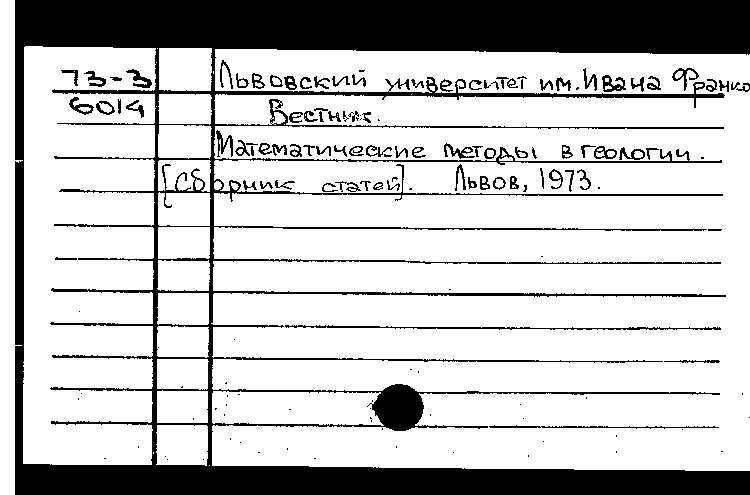 73-3 Львовский университет им. Ивана Франко
6014 Вестник.
Математические методы в геологии.
[Сборник статей]. Львов, 1973.